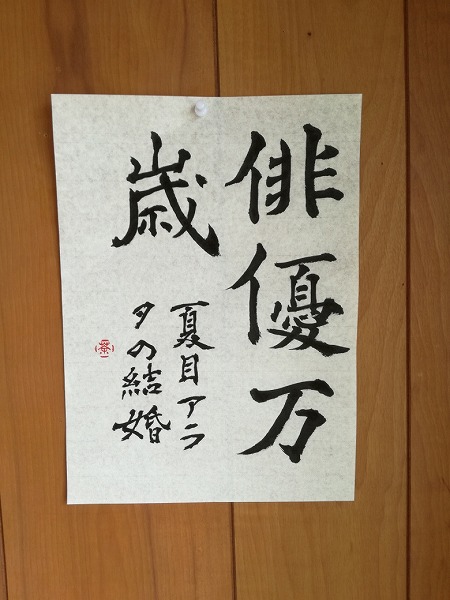 俳優万
歳
夏目アラ
タの結婚